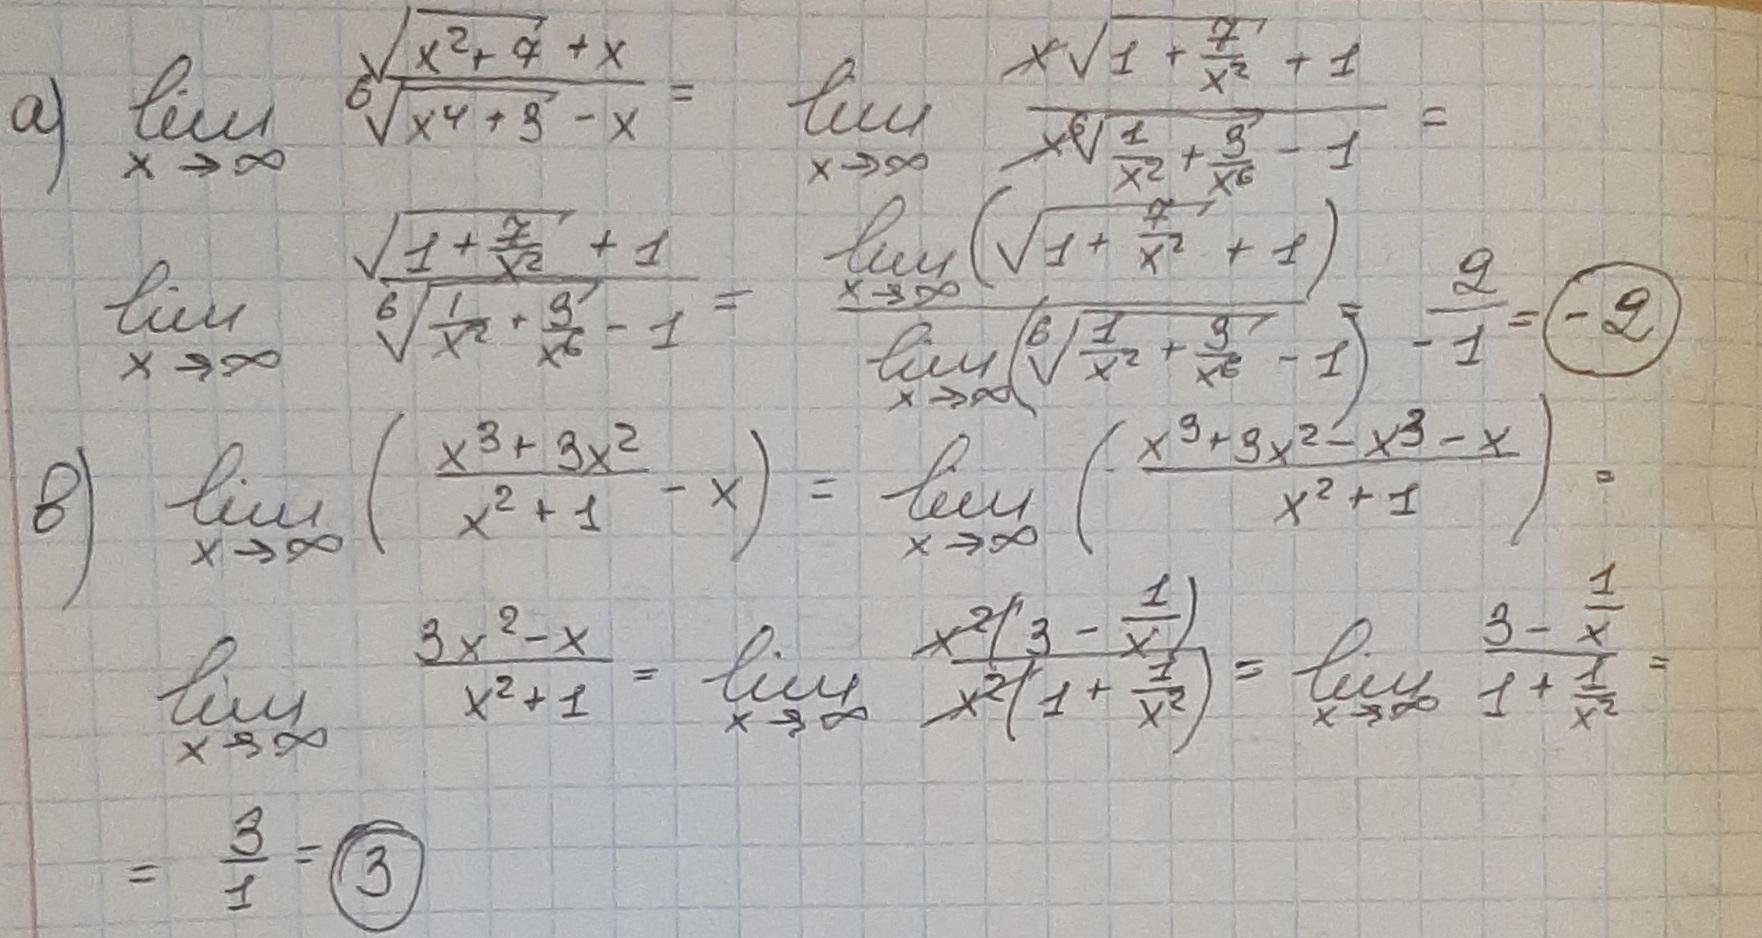 а) lim x→∞ (√(x²+7) + x)/(⁶√(x⁴+3) - x) = lim x→∞ (x√(1 + 7/x²) + 1)/(x⁶√(1/x² + 3/x⁶) - 1) =
lim x→∞ (√(1 + 7/x²) + 1)/(⁶√(1/x² + 3/x⁶) - 1) = lim x→∞ (√(1 + 7/x²) + 1)/lim x→∞ (⁶√(1/x² + 3/x⁶) - 1) = 2/-1 = -2
в) lim x→∞ ((x³ + 3x²)/(x² + 1) - x) = lim x→∞ ((x³+3x²-x³-x)/(x² + 1)) =
lim x→∞ (3x²-x)/(x²+1) = lim x→∞ x²(3 - 1/x)/x²(1 + 1/x²) = lim x→∞ (3 - 1/x)/(1 + 1/x²) =
= 3/1 = 3